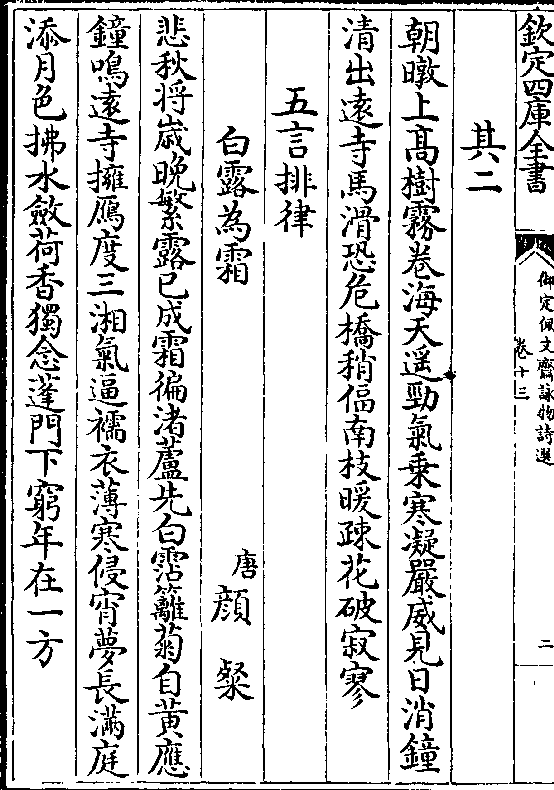 欽定四庫全書
御定佩文齋詠物詩選
卷十三
二
其二
朝暾上高樹霧卷海天遥勁氣乗寒凝嚴威見日消鐘
清出逺寺馬滑恐危橋稍偪南枝暖疎花破寂寥
五言排律
白露為霜
唐顔粲
悲秋将嵗晚繁露已成霜徧渚蘆先白霑籬菊自黄應
鐘鳴逺寺擁鴈度三湘氣逼襦衣薄寒侵宵夢長滿庭
添月色拂水斂荷香獨念蓬門下窮年在一方